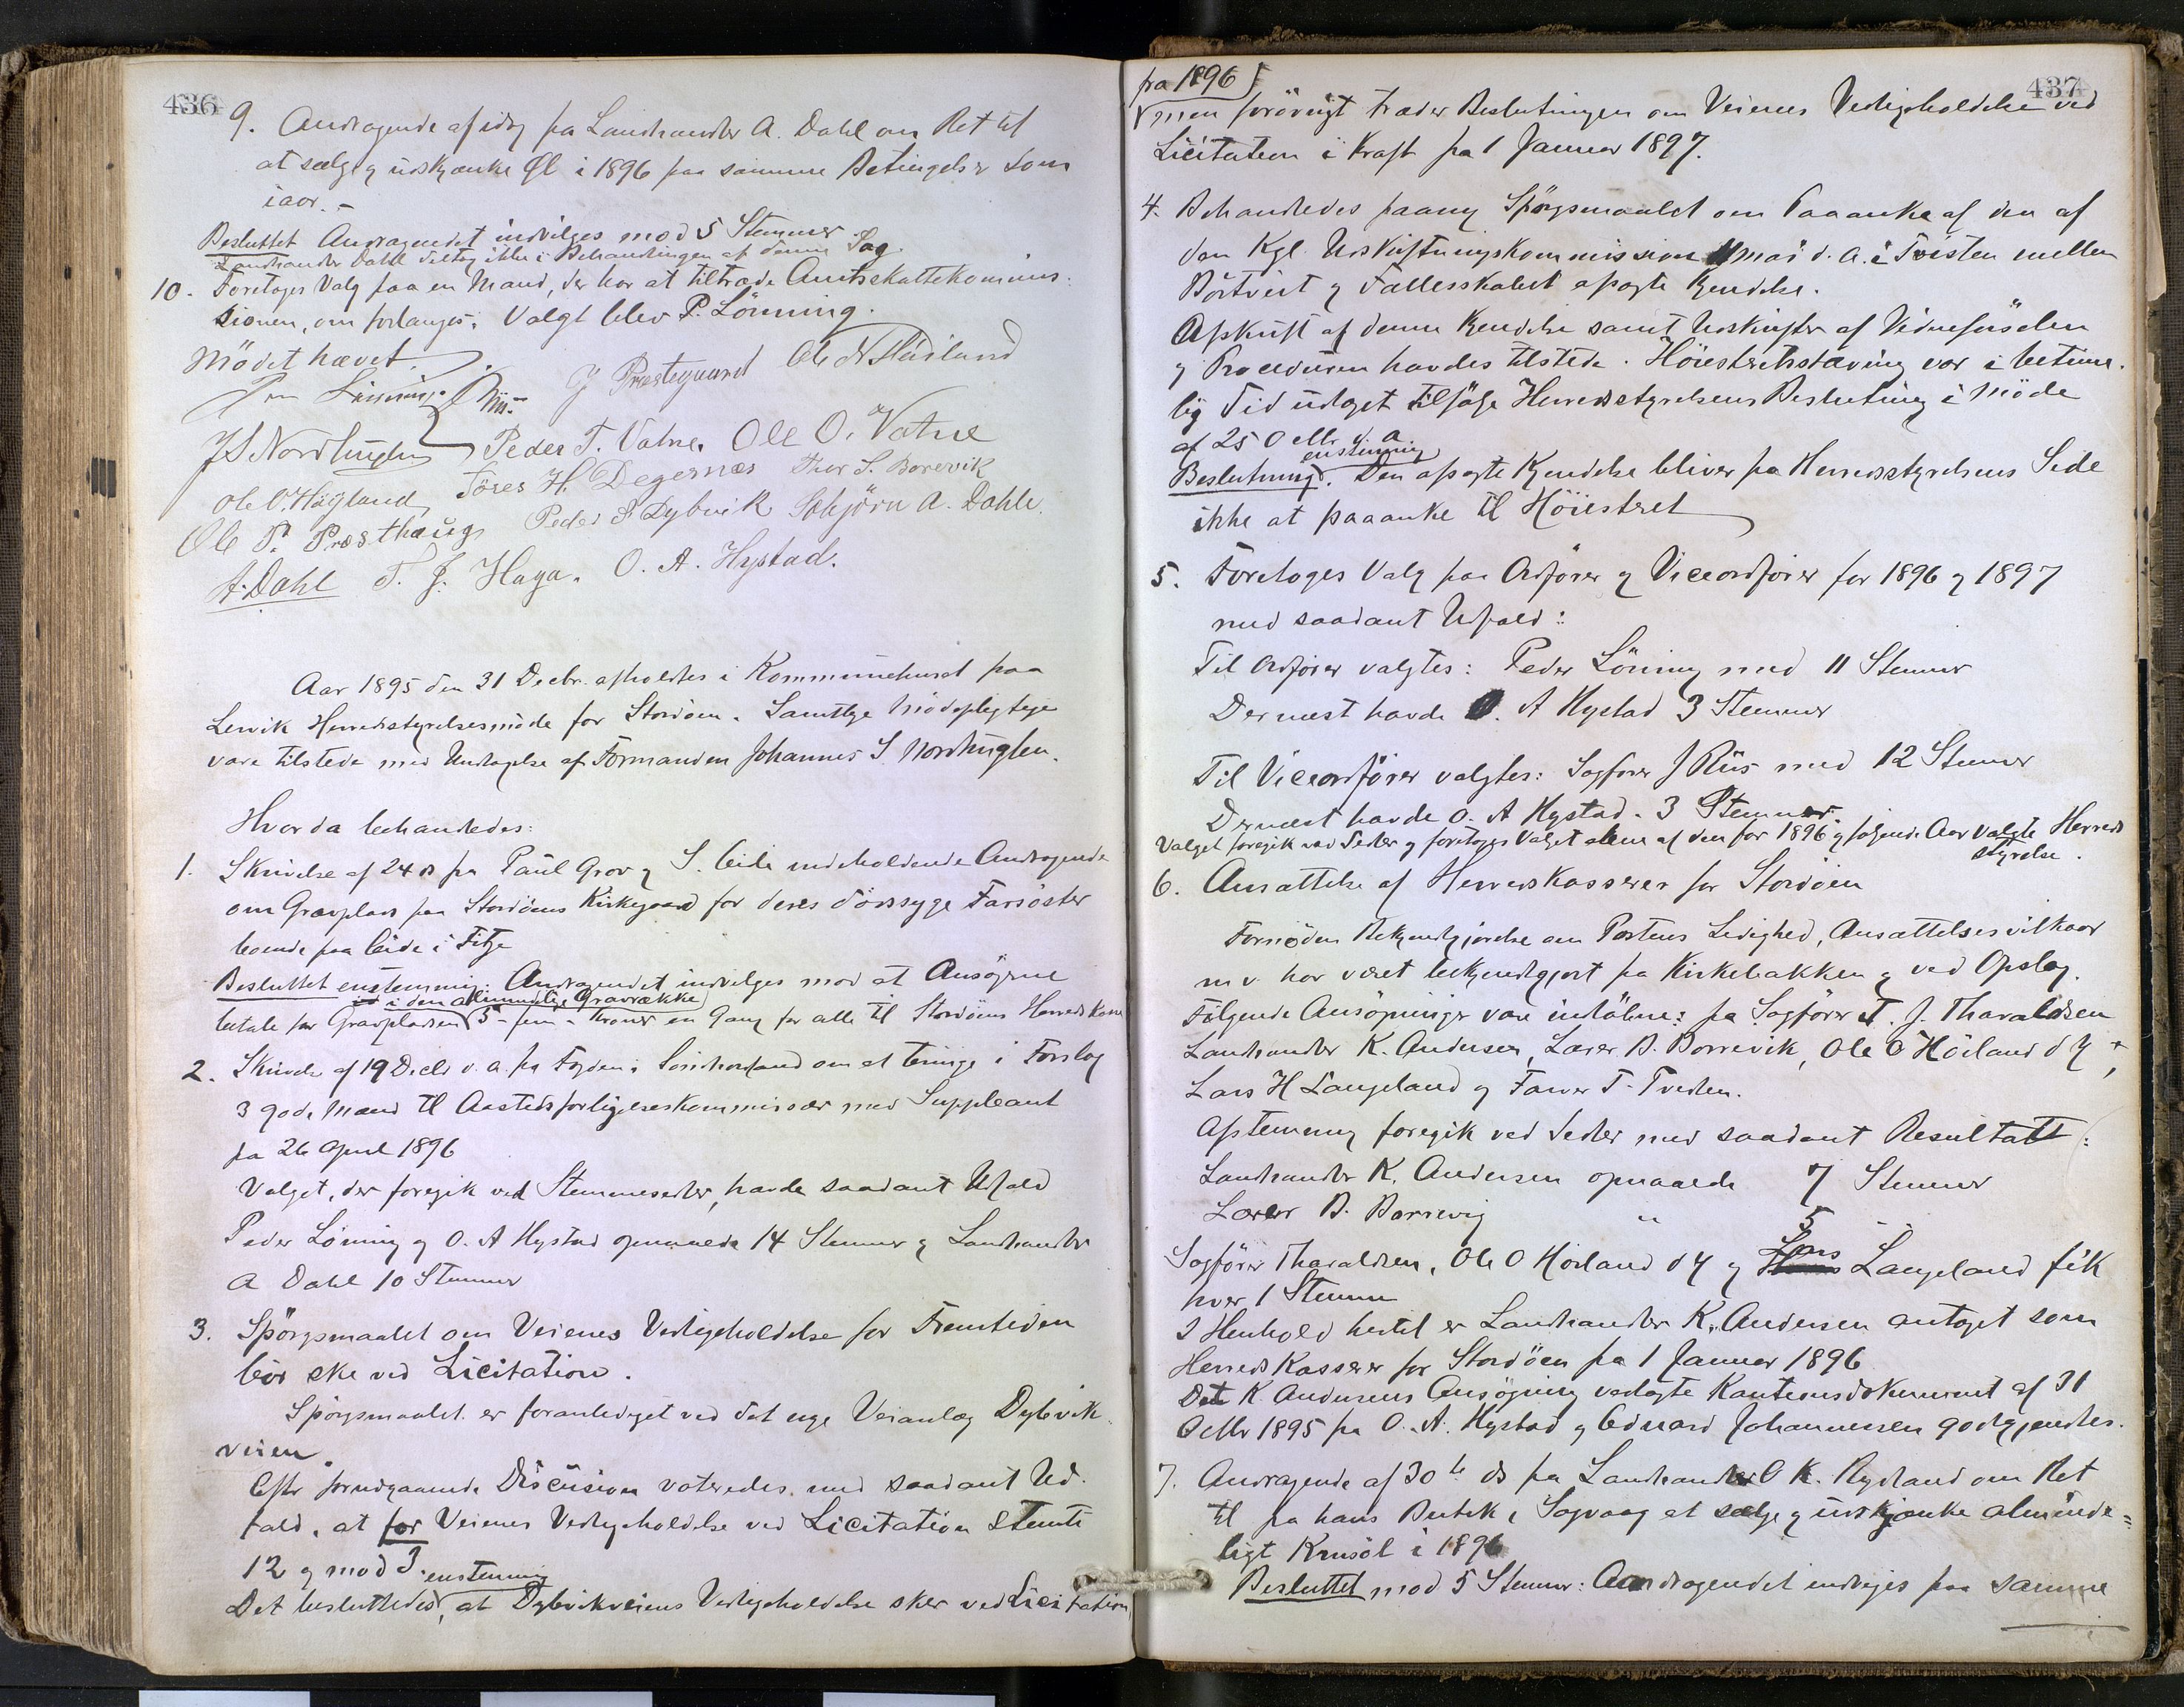 436
9. Andragende af idag fra Landhandler A. Dahl om Ret til
at sælge og udskjænke Øl i 1896 paa samme Betingelser som
iaar. –
Besluttet Andragendet indvilges mod 5 Stemmer
Landhandler Dahl deltog ikke i Behandlingen af denne Sag.
10. Foretages Valg paa en Mand, der har at tiltræde Amtsskattekommis-
sionen, om forlanges. Valgt blev P. Lönning.
Mödet hævet.
Lönning J Riis J Præstegaard Ole N Hadland
J S Nordhuglen Peder T. Vatne. Ole O. Vatne
Ole O. Høyland Töres H. Degernæs Thor S. Borevik
Ole P. Præsthaug Peder S Dybvik Asbjörn A. Dahle.
A. Dahl T. J. Haga. O. A. Hystad.
Aar 1895 den 31 Decbr. afholdtes i Kommunehuset paa
Lervik Herredsstyrelsesmöde for Stordöen. Samtlige Mödepligtige
vare tilstede med Undtagelse af Formanden Johannes S. Nordhuglen.
Hvor da behandledes:
1. Skrivelse af 24 ds fra Paul Grov og S. Eide indeholdende Andragende
om Gravplads paa Stordöens Kirkegaard for deres dödssyge Farsöster
boende paa Eide i Fitje
Besluttet enstemmig: Andragendet indvilges mod at Ansögerne
i den almindelige Gravrække
betale for Gravpladsen 5 – fem – Kroner en Gang for alle til Stordöens Herredskasse
2. Skrivelse af 19 Decbr d. a. fra Fogden i Söndhordland om at bringe i Forslag
3 gode Mænd til Aastedsforligelseskommissær med Suppleant
fra 26 April 1896
Valget, der foregik ved Stemmesedler, havde saadant Udfald
Peder Lönning og O. A Hystad opnaaede 14 Stemmer og Landhandler
A Dahl 10 Stemmer
3. Spörgsmaalet om Veienes Vedligeholdelse for Fremtiden
bör ske ved Licitation.
Spörgsmaalet er foranlediget ved det nye Veianlæg Dybvik-
veien.
Efter forudgaaende Discusion voteredes med saadant Ud-
fald, at for Veienes Vedligeholdelse ved Licitation stemte
12 og mod 3.
enstemmig
Det besluttedes, at Dybvikveiens Vedligeholdelse sker ved Licitation
437
fra 1896
men forövrigt træder Beslutningen om Veienes Vedligeholdelse ved
Licitation i Kraft fra 1 Januar 1897.
4. Behandledes paany Spörgsmaalet om Paaanke af den af
den Kgl. Udskiftningskommission mai d. a. i Tvisten mellem
Börtveit og Fællesskabet afsagte Kjendelse.
Afskrift af denne Kjendelse samt Udskrifter af Vidneförselen
og Proceduren havdes tilstede. Höiesteretsstævning var i betime-
lig Tid udtaget tilfölge Herredsstyrelsens Beslutning i Möde
af 25 Octbr. d. a.
enstemmig
Beslutning: Den afsagte Kjendelse bliver fra Herredsstyrelsens Side
ikke at paaanke til Höiesteret
5. Foretages Valg paa Ordförer og Viceordförer for 1896 og 1897
med saadant Udfald:
Til Ordförer valgtes: Peder Löning med 11 Stemmer
Dernæst havde O. A Hystad 3 Stemmer
Til Viceordförer valgtes: Sagförer J Riis med 12 Stemmer
Dernæst havde O. A Hystad. 3 Stemmer.
Valget foregik ved Sedler og foretoges Valget alene af den for 1896 og fölgende Aar valgte Herreds
styrelse.
6. Ansættelse af Herredskasserer for Stordöen
Fornöden Bekjendtgjörelse om Postens Ledighed, Ansættelsesvilkaar
m v. har været bekjendtgjort fra Kirkebakken og ved Opslag.
Fölgende Ansögninger vare indlöbne: fra Sagförer T. J. Tharaldsen
Landhandler K. Andersen, Lærer B. Borrevik, Ole O Höiland d y,
Lars H Langeland og Farver T. Tveden.
Afstemning foregik ved Sedler med saadant Resultatt:
Landhandler K. Andersen opnaaede 7 Stemmer
Lærer B. Borrevig " 5 –
Sagförer Tharaldsen, Ole O Höiland d y og Lars Langeland fik
hver 1 Stemme
I Henhold hertil er Landhandler K. Andersen antaget som
Herreds Kasserer for Stordöen fra 1 Januar 1896
Det K. Andersens Ansögning vedlagte Kautionsdokument af 31
Octbr 1895 fra O. A. Hystad og Edvard Johannessen godkjendtes.
7. Andragende af 30te ds fra Landhandler O K. Rydland om Ret
til fra hans Butik i Sagvaag at sælge og udskjænke alminde=
ligt Krusöl i 1896
Besluttet mod 5 Stemmer: Andragendet indvilges paa samme